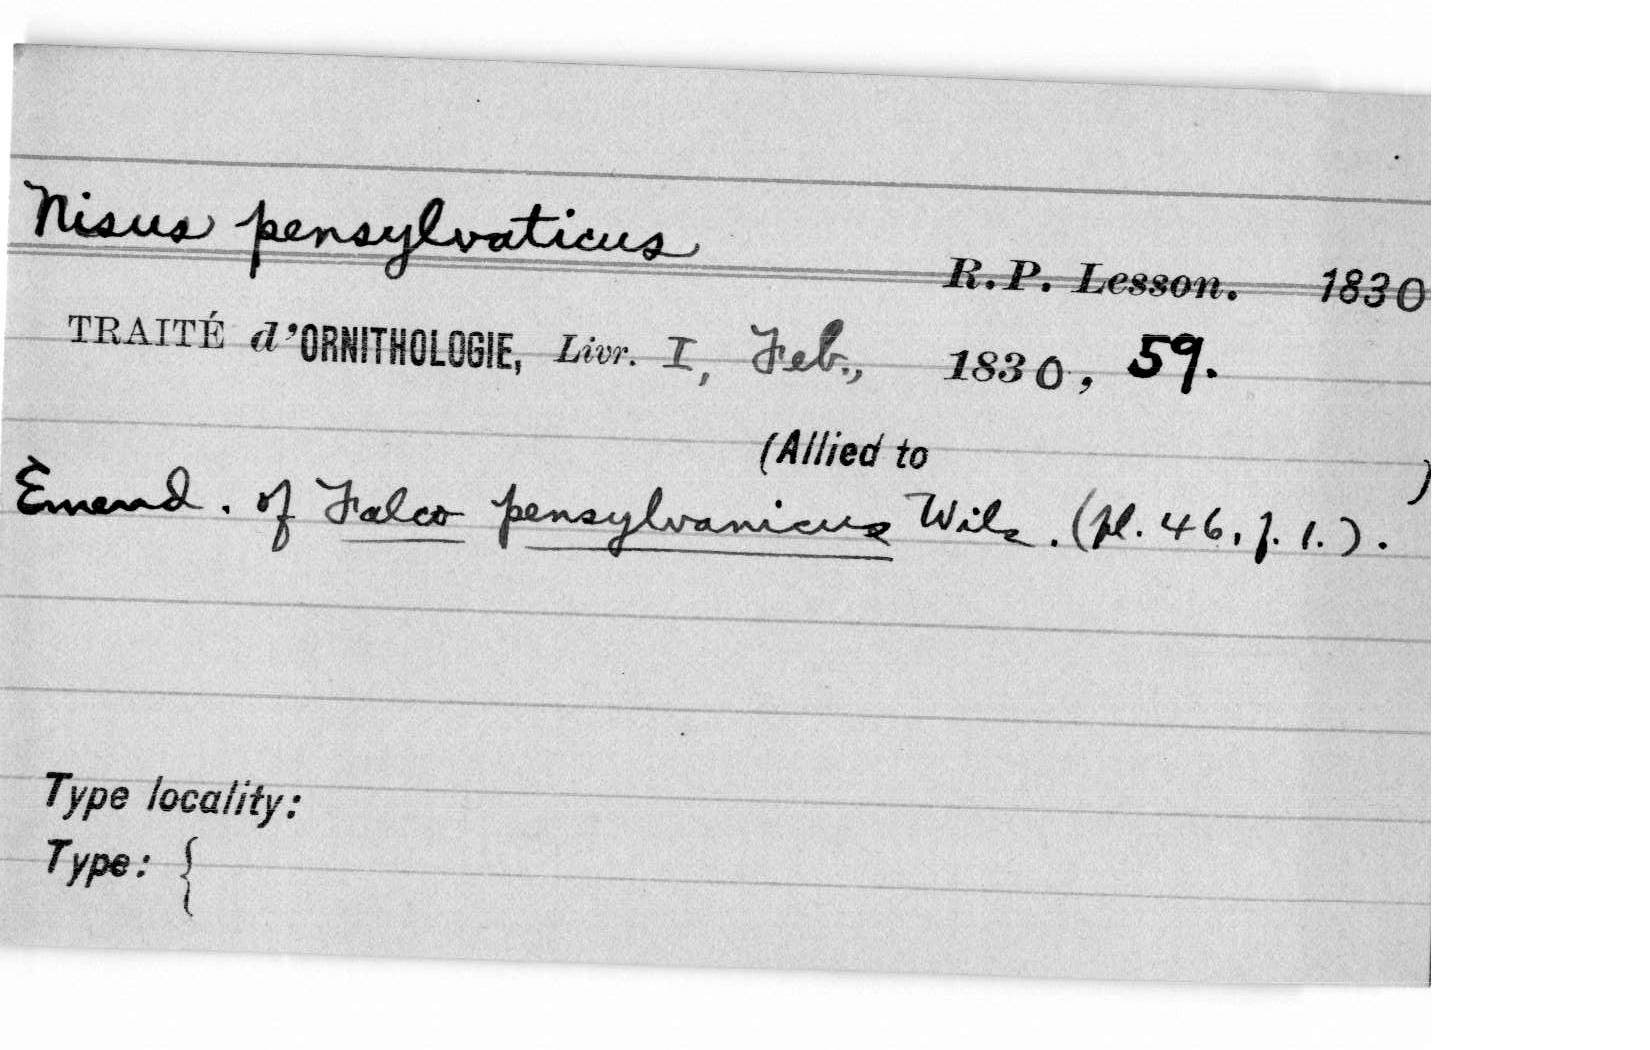 Nisus pensylvaticus
R.P. Lesson. 1830
TRAITÉ d'ORNITHOLOGIE, Livr. I, Feb., 1830, 59.
(Allied to )
Emend. of Falco pensylvanicus Wils. (pl. 46, f. 1.).
Type locality:
Type: {